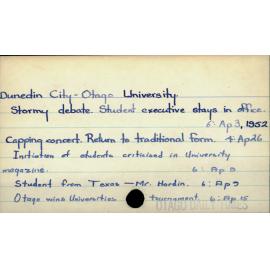 Dunedin City - Otago University
Stormy debate. Student executive stays in office.
6: Ap 3, 1952
Capping concert. Return to traditional form. 4: Ap 26
Initiation of students criticised in University
magazine. 6: Ap 8
Student from Texas — Mr. Hardin. 6: Ap 9
Otago wins Universities tournament. 6: Ap 15
OTAGO DAILY TIMES